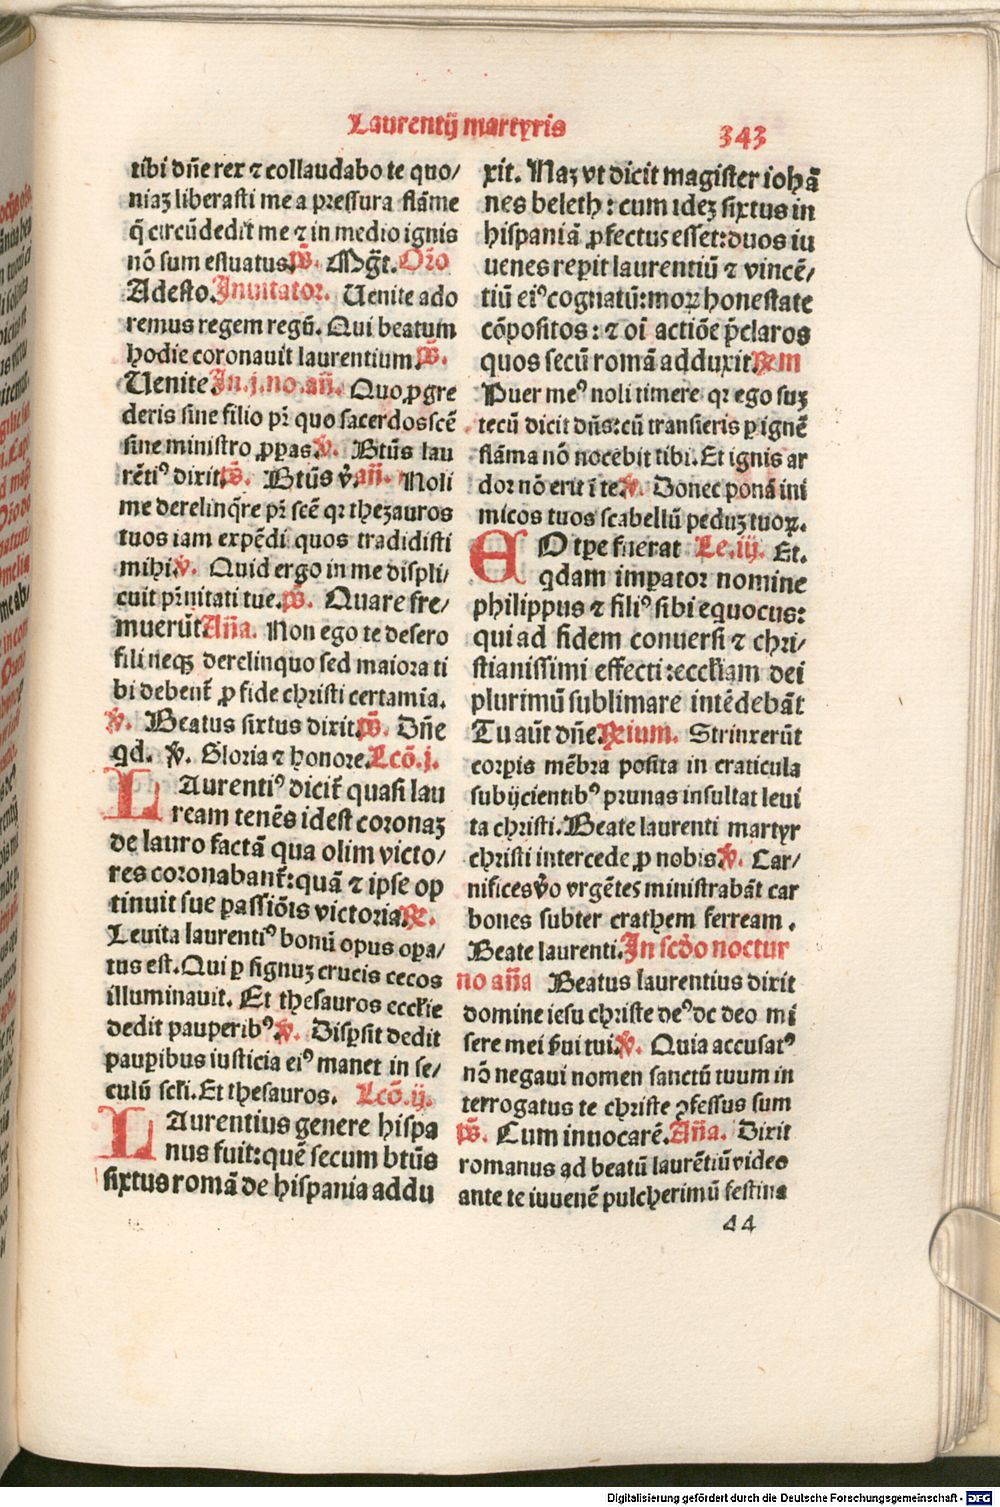 Laurentij martyris
343
tibi dn̄e rex ⁊ collaudabo te quo/
niaꝫ liberasti me a pressura flāme
q̄ circūdedit me ⁊ in medio ignis
nō sum estuatus. p̄s. Mg̃t. Or̃o
Adesto. Inuitator. Uenite ado
remus regem regū. Qui beatum
hodie coronauit laurentium. p̄s.
Uenite. In .j. no. añ. Quo ꝓgre
deris sine filio pr̄ quo sacerdos scē
sine ministro ꝓꝑas. v̄. Bt̄us lau
rētiꝰ dixit. p̄s. Bt̄us v̄. añ. Noli
me derelinq̄re pr̄ scē qꝛ thezauros
tuos iam expēdi quos tradidisti
mihi. v̄. Quid ergo in me displi/
cuit pr̄nitati tue. p̄s. Quare fre/
muerūt Añа. Non ego te desero
fili neqꝫ derelinquo sed maiora ti
bi debent̄ ꝓ fide christi certamia.
v̄. Beatus sixtus dixit. p̄s. Dn̄e
qd. v̄. Gloria ⁊ honore. Lcō. j.
LAurentiꝰ dicit̄ quasi lau
ream tenēs idest coronaꝫ
de lauro factā qua olim victo/
res coronabant̄: quā ⁊ ipse op
tinuit sue passiōis victoria ℞.
Leuita laurentiꝰ bonū opus opa/
tus est. Qui ꝑ signuꝫ crucis cecos
illuminauit. Et thesauros eccłie
dedit pauperibꝰ v̄. Disꝑsit dedit
pauꝑibus iusticia eiꝰ manet in se/
culū scłi. Et thesauros. Lcō. ij.
LAurentius genere hispa
nus fuit: quē secum bt̄us
sixtus romā de hispania addu
xit. Naꝫ vt dicit magister iohā
nes beleth: cum ideꝫ sixtus in
hispaniā ꝓfectus esset: duos iu
uenes reꝑit laurentiū ⁊ vincē/
tiū eiꝰ cognatū: moꝝ honestate
cōpositos: ⁊ oī actiōe p̄claros
quos secū romā adduxit ℞m
Puer meꝰ noli timere qꝛ ego suꝫ
tecū dicit dn̄s: cū transieris ꝑ ignē
flāma nō nocebit tibi. Et ignis ar
dor nō erit ī te v̄. Donec ponā ini
micos tuos scabellū peduꝫ tuoꝝ.
EO tꝑe fuerat Le. iij. Et.
qdam imꝑator nomine
philippus ⁊ filiꝰ sibi equocus:
qui ad fidem conuersi ⁊ chri/
stianissimi effecti: eccłiam dei
plurimū sublimare intēdebāt
Tu aūt dn̄e ℞ium. Strinxerūt
corꝑis mēbra posita in craticula
subijcientibꝰ prunas insultat leui
ta christi. Beate laurenti martyr
christi intercede ꝓ nobis v̄. Car/
nifices v̄o vrgētes ministrabāt car
bones subter crathem ferream.
Beate laurenti. In scd̄o noctur
no añа Beatus laurentius dixit
domine iesu christe deꝰ de deo mi
sere mei s̄ui tui. v̄. Quia accusatꝰ
nō negaui nomen sanctū tuum in
terrogatus te christe ꝯfessus sum
p̄s. Cum inuocarē. Añа. Dixit
romanus ad beatū laurētiū vides
ante te iuuenē pulcherimū festina
44
Digitalisierung gefördert durch die Deutsche Forschungsgemeinschaft - DFG